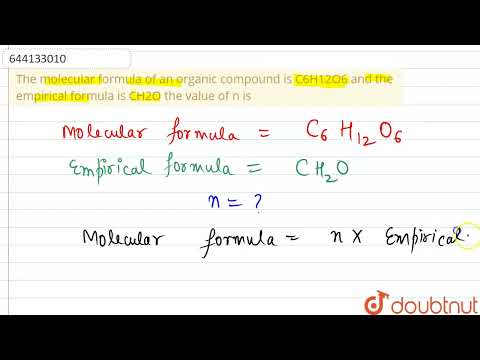 644133010
The molecular formula of an organic compound is C6H12O6 and the
empirical formula is CH2O the value of n is
Molecular formula = C6 H12 O6
Empirical formula = CH2O
n = ?
Molecular formula = n X Empirical.
doubtnut